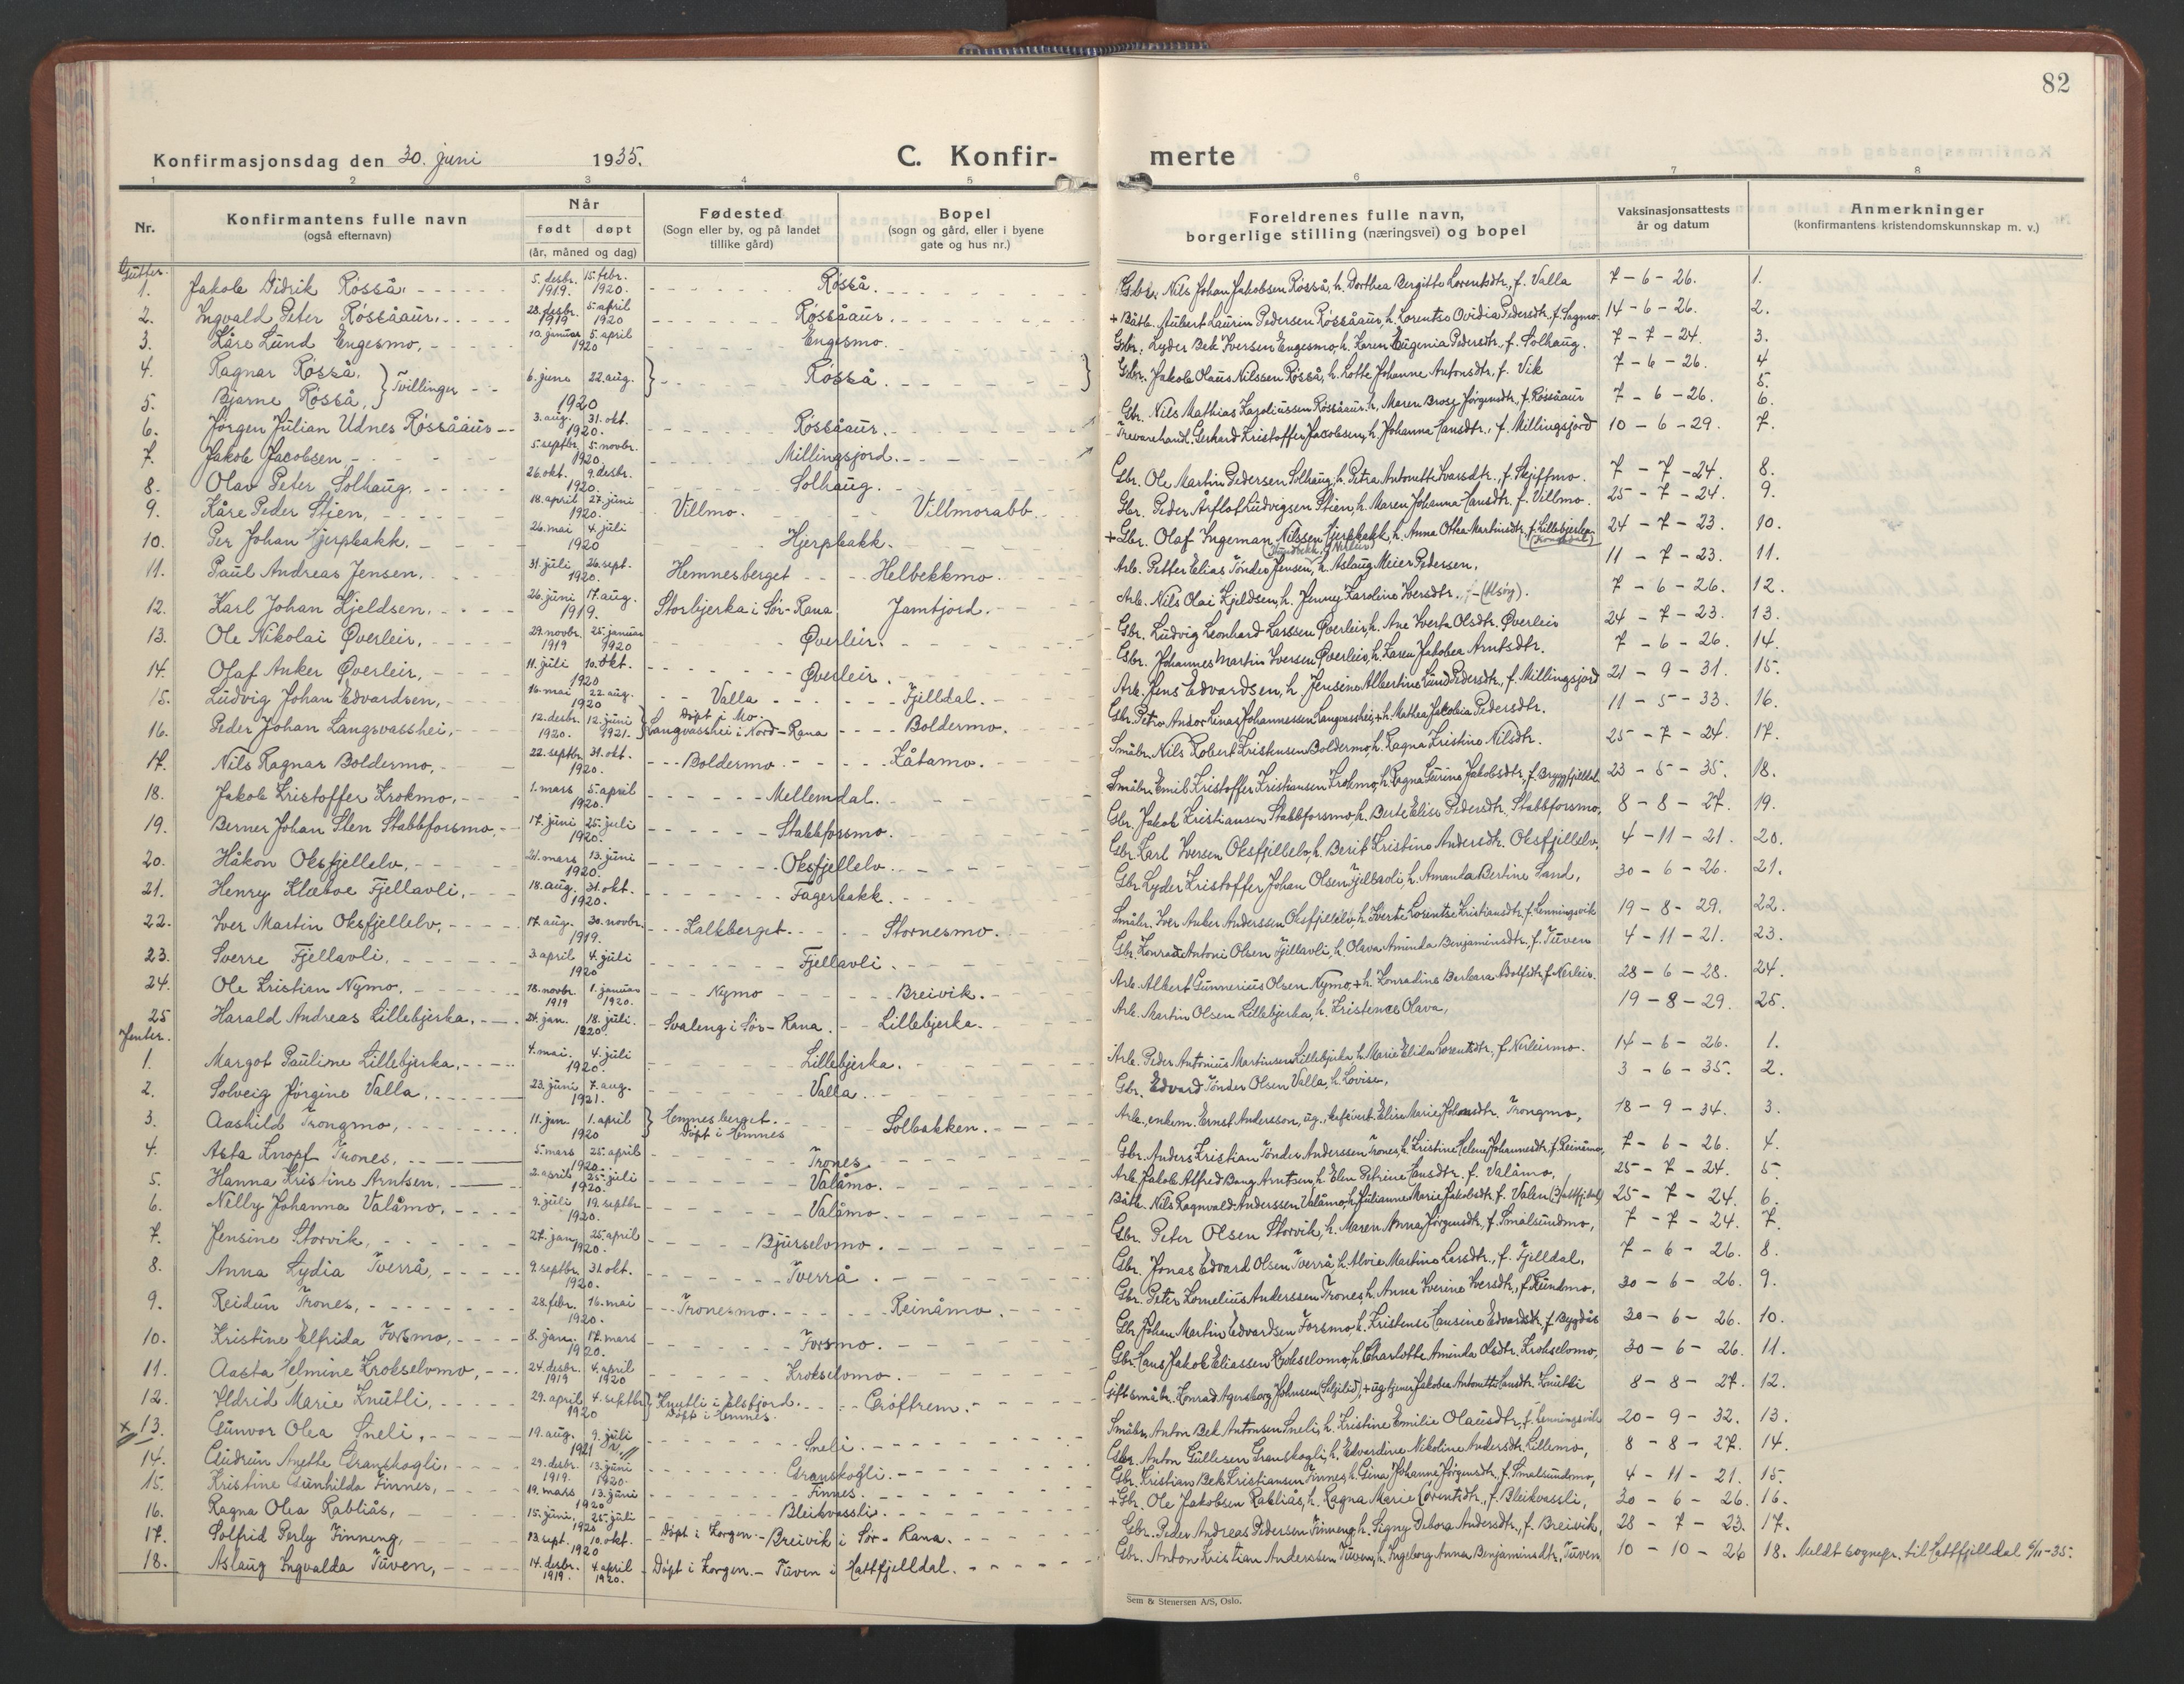 82
Konfirmasjonsdag den 30. juni 1935.
C. Konfir- merte
1 2 3 4 5 6 7 8
Nr. Konfirmantens fulle navn (også efternavn) Når født døpt (år, måned og dag) Fødested (Sogn eller by, og på landet tillike gård) Bopel (sogn og gård, eller i byene gate og hus nr.) Foreldrenes fulle navn, borgerlige stilling (næringsvei) og bopel Vaksinasjonsattests år og datum Anmerkninger (konfirmantens kristendomskunnskap m. v.)
Gutter.
1. Jakob Didrik Røsså. 5. desbr. 1919. 15. febr. 1920. Røsså. Gbr. Nils Johan Jakobsen Røsså, h. Dorthea Bergitte Lorentsdtr., f. Valla 7-6-26. 1.
2. Ingvald Peter Røssåaur. 28. desbr. 1919 5. april 1920 Røssåaur. + Båtb. Aubert Laurin Pedersen Røssåaur, h. Lorentse Ovidia Pedersdtr. f. Sagmo 14-6-26. 2.
3. Kåre Lund Engesmo, 10. januar 5. april 1920 Engesmo. Gbr. Lyder Bek Iversen Engesmo, h. Karen Eugenia Pedersdtr., f. Solhaug. 7-7-24. 3.
4. Ragnar Røsså, } Tvillinger 6. juni 22. aug. 1920 Røsså. Gbr. Jakob Olaus Nilssen Røsså, h. Lotte Johanne Antonsdtr., f. Vik 7-6-26. 4
5. Bjarne Røsså, 5.
6. Jørgen Julian Udnes Røssåaur 3. aug. 31. okt. 1920. Røssåaur. Gbr. Nils Mathias Karoliussen Røssåaur, h. Maren Jørgensdtr., f. Røssåaur 7-6-26. 6.
7. Jakob Jacobsen 5. septbr. 5. novbr. 1920 Millingsjord. Trevarehandl. Gerhard Kristoffer Jacobsen, h. Johanna Hansdtr., f. Millingsjord 10-6-29. 7.
8. Olav Peter Solhaug. 26. okt. 9. desbr. 1920. Solhaug. Gbr. Ole Martin Pedersen Solhaug, h. Petra Antonette Ivarsdtr., f. Skjiffmo. 7-7-24. 8.
9. Kåre Peder Stien, 18. april 27. juni 1920. Villmo. Villmorabb Gbr. Peder Årflot Ludvigsen Stien, h. Maren Johanna Hansdtr. f. Villmo. 25-7-24. 9.
10. Per Johan Hjerpbakk. 26. mai 4. juli 1920 Hjerpbakk. + Gbr. Olaf Ingeman Nilssen Hjerpbakk, h. Anna Othea Martinsdtr. f. Lillebjerka 24-7-23. 10.
11. Paul Andreas Jensen. 31. juli 26. sept. 1920. Hemnesberget Helbekkmo. Arb. Petter Elias Tønder Jensen, h. Aslaug Meier Pedersen. 11-7-23. 11.
12. Karl Johan Kjeldsen. 26. juni 17. aug. 1919. Storbjerka i Sør-Rana Jamtjord. Arb. Nils Olai Kjeldsen, h. Jenny Karoline Iversdtr. 7-6-26. 12.
13. Ole Nikolai Øverleir, 29. novbr. 1919 25. januar 1920 Øverleir. Gbr. Ludvig Leonhard Larssen Øverleir, h. Ane Iverta Olsdtr. Øverleir 24-7-23. 13.
14. Olaf Anker Øverleir, 11. juli 10. okt. 1920 Øverleir. Gbr. Johannes Martin Iversen Øverleir, h. Karen Jakobea Arntsdtr. 7-6-26. 14.
15. Ludvig Johan Edvardsen, 16. mai 22. aug. 1920 Valla Fjelldal. Arb. Jens Edvardsen, h. Jensine Albertine Lund Pedersdtr., f. Millingsjord 21-9-31. 15.
16. Peder Johan Langvasshei, 12. desbr. 1920. 12. juni 1921. Døpt i Mo. Langvasshei i Nord-Rana Boldermo. Gbr. Petro Andor Linas Johannessen Langvasshei, + h. Mathea Jakobia Pedersdtr. 11-5-33. 16.
17. Nils Ragnar Boldermo, 22. septbr. 31. okt. 1920. Boldermo Kåtamo. Småbr. Nils Robert Kristensen Boldermo, h. Ragna Kristine Nilsdtr. 25-7-24. 17.
18. Jakob Kristoffer Krokmo, 1. mars 5. april 1920. Mellemdal. Småbr. Emil Kristoffer Kristiansen Krokmo, h. Ragna Jakobsdtr., f. Bryggfjelldal 23-5-35. 18.
19. Berner Johan Sten Stabbforsmo. 17. juni 25. juli 1920. Stabbforsmo. Gbr. Jakob Kristiansen Stabbforsmo, h. Berte Elise Pedersdtr. Stabbforsmo, 8-8-27. 19.
20. Håkon Oksfjellelv, 21. mars 13. juni 1920. Oksfjellelv Gbr. Karl Iversen Oksfjellelv, h. Berit Kristine Andersdtr. Oksfjellelv, 4-11-21. 20.
21. Henry Klæboe Fjellavli, 18. aug. 31. okt. 1920. Fagerbakk. Gbr. Lyder Kristoffer Johan Olsen Fjellavli, h. Amanda Bertine Sand, 30-6-26. 21.
22. Iver Martin Oksfjellelv, 17. aug. 30. novbr. 1919. Kalkberget. Stornesmo. Småbr. Iver Anker Anderssen Oksfjellelv, h. Iverte Lorentse Kristiansdtr., f. Lenningsvik 19-8-29. 22.
23. Sverre Fjellavli, 3. april 4. juli 1920 Fjellavli. Gbr. Konrad Antoni Olsen Fjellavli, h. Olava Aminda Benjaminsdtr., f. Tuven 4-11-21. 23.
24. Ole Kristian Nymo. 18. novbr. 1919 1. januar 1920. Nymo Breivik. Arb. Albert Gunnerius Olsen Nymo, + h. Konradine Barbara Adolfsdtr. f. Nerleir. 28-6-28. 24.
25 Harald Andreas Lillebjerka, 24. jan. 18. juli. 1920 Svaleng i Sør-Rana. Lillebjerka. Arb. Martin Olsen Lillebjerka, h. Kristence Olava, 19-8-29. 25.
Jenter.
1. Margot Pauline Lillebjerka, 4. mai. 4. juli 1920. Lillebjerka. Arb. Peder Antonius Martinsen Lillebjerka, h. Marie Elida Lorentsdtr., f. Nerleirmo. 14-6-26. 1.
2. Solveig Jørgine Valla, 23. juni 7. aug. 1921. Valla. Gbr. Edvard Tønder Olsen Valla, h. Lovise, 3-6-35. 2.
3. Aashild Trongmo, 11. jan. 1. april 1920 Hemnesberget. Døpt i Hemnes Solbakken. Arb., enkem. Ernst Andersson, ug., Elise Marie Johansdtr. Trongmo, 18-9-34. 3.
4. Asta Knopf Trones, 5. mars 25. april 1920. Trones Gbr. Anders Kristian Tønder Anderssen Trones, h. Kristine Helene Johannesdtr., f. Reinåmo, 7-6-26. 4.
5. Hanna Kristine Arntsen. 2. april 25. juli 1920. Valåmo. Arb. Jakob Alfred Bang Arntsen, h. Elen Petrine Hansdtr. f. Valåmo, 25-7-24. 5
6. Nelly Johanna Valåmo, 9. juli 19. septbr. 1920. Valåmo. Båtb. Nils Ragnvald Anderssen Valåmo, h. Julianne Marie Jakobsdtr. f. Valen (Hattfjeldal) 25-7-24. 6.
7. Jensine Storvik, 27. jan. 25. april 1920. Bjurselvmo. Gbr. Peter Olsen Storvik, h. Maren Anna Jørgensdtr., f. Smalsundmo, 7-7-24. 7.
8. Anna Lydia Tverrå, 9. septbr. 31. okt. 1920. Tverrå. Gbr. Jonas Edvard Olsen Tverrå, h. Alvie Martine Larsdtr., f. Fjelldal, 7-6-26. 8.
9. Reidun Trones, 28. febr. 16. mai 1920. Tronesmo. Reinåmo. Gbr. Peter Kornelius Anderssen Trones, h. Anna Iverine Iversdtr., f. Rundmo, 30-6-26. 9.
10. Kristine Elfrida Forsmo, 8. jan. 17. mars 1920. Forsmo. Gbr. Johan Martin Edvardsen Forsmo, h. Kristense Hansine Edvardsdtr., f. Bygdås 30-6-26. 10.
11. Aasta Helmine Krokselvmo, 24. desbr. 1919 4. april 1920 Krokselvmo. Gbr. Hans Jakob Eliassen Krokselvmo, h. Charlotte Aminda Olsdtr. Krokselvmo, 30-6-26. 11.
12. Eldrid Marie Knutli, 29. april 4. septbr. 1920 Knutli i Elsfjord. Døpt i Hemnes. Grøftrem. Gift småbr. Konrad Agersborg Johnsen (Seljelid), + ug. tjener Jakobea Antonette Hansdtr. Knutli 8-8-27. 12.
x 13. Gunvor Olea Sneli, 19. aug. 9. juli 1921 Sneli. Småbr. Anton Bek Antonsen Sneli, h. Kristine Emilie Olausdtr., f. Lenningsvik 20-9-32. 13.
14. Gudrun Anette Granskogli, 29. desbr. 1919. 13. juni 1920. Granskogli. Gbr. Anton Gullesen Granskogli, h. Edvardine Nikoline Andersdtr. Lillemo, 8-8-27. 14.
15. Kristine Gunhilda Finnes, 19. mars 13. juni 1920 Finnes. Gbr. Kristian Bek Kristiansen Finnes, h. Gina Johanne Jørgensdtr., f. Smalsundmo, 4-11-21. 15.
16. Ragna Olea Rabliås, 15. juni. 25. juli 1920 Bleikvassli. + Gbr. Ole Jakobsen Rabliås, h. Ragna Marie Lorentsdtr., f. Bleikvassli, 30-6-26. 16.
17. Solfrid Perly Finneng, 13. sept. 10. okt. 1920 Døpt i Korgen. Breivik i Sør-Rana. Gbr. Peder Andreas Pedersen Finneng, h. Signy Debora Andersdtr., f. Breivik, 28-7-23. 17.
18. Aslaug Ingvalda Tuven, 14. desbr. 1919. 4. april 1920. Døpt i Korgen. Tuven i Hattfjelldal. Gbr. Anton Kristian Anderssen Tuven, h. Ingeborg Anna Benjaminsdtr. Tuven 10-10-26 18. Meldt sognepr. til Hattfjelldal 6/11-35.
Sem & Stenersen A/S, Oslo.